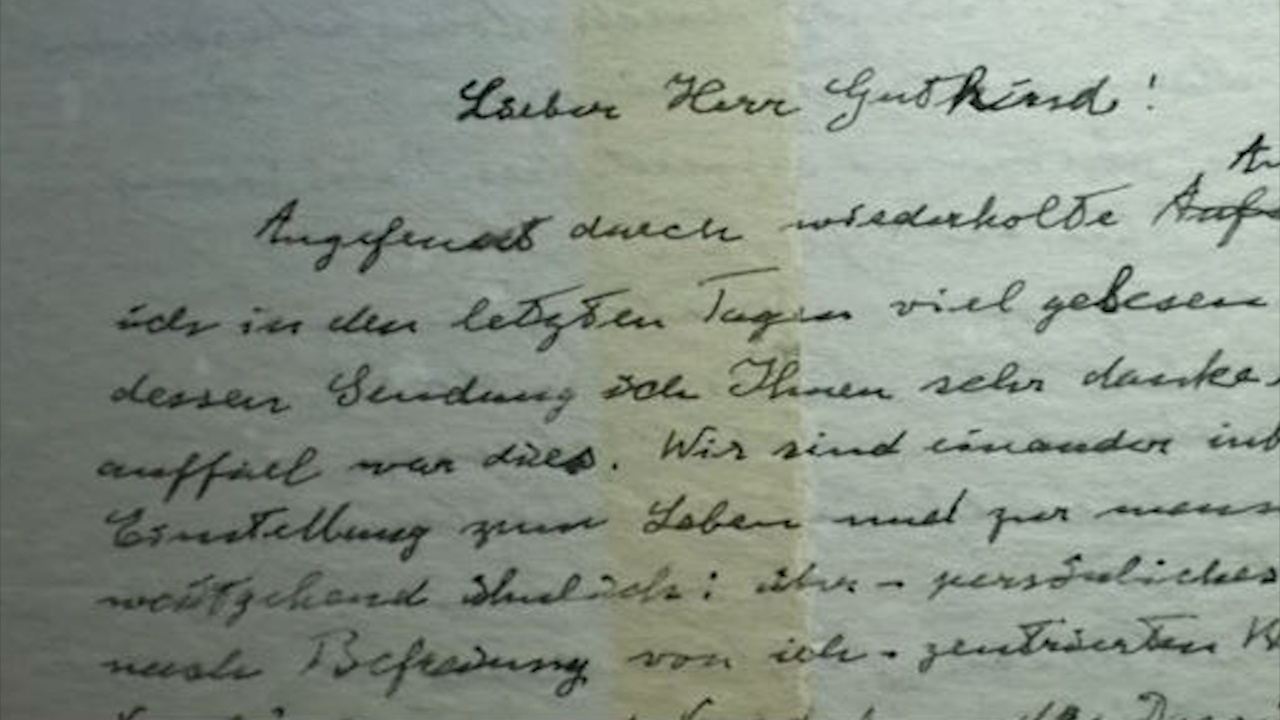 Lieber Herr Gutkind!
Angefeuert durch wiederholte
ich in den letzten Tagen viel gelesen
dessen Sendung ich Ihnen sehr danke.
auffiel war dies. Wir sind einander
Einstellung zum Leben und zur mens
weitgehend ähnlich: über-persönliches
nach Befreiung von ich-zentrierten